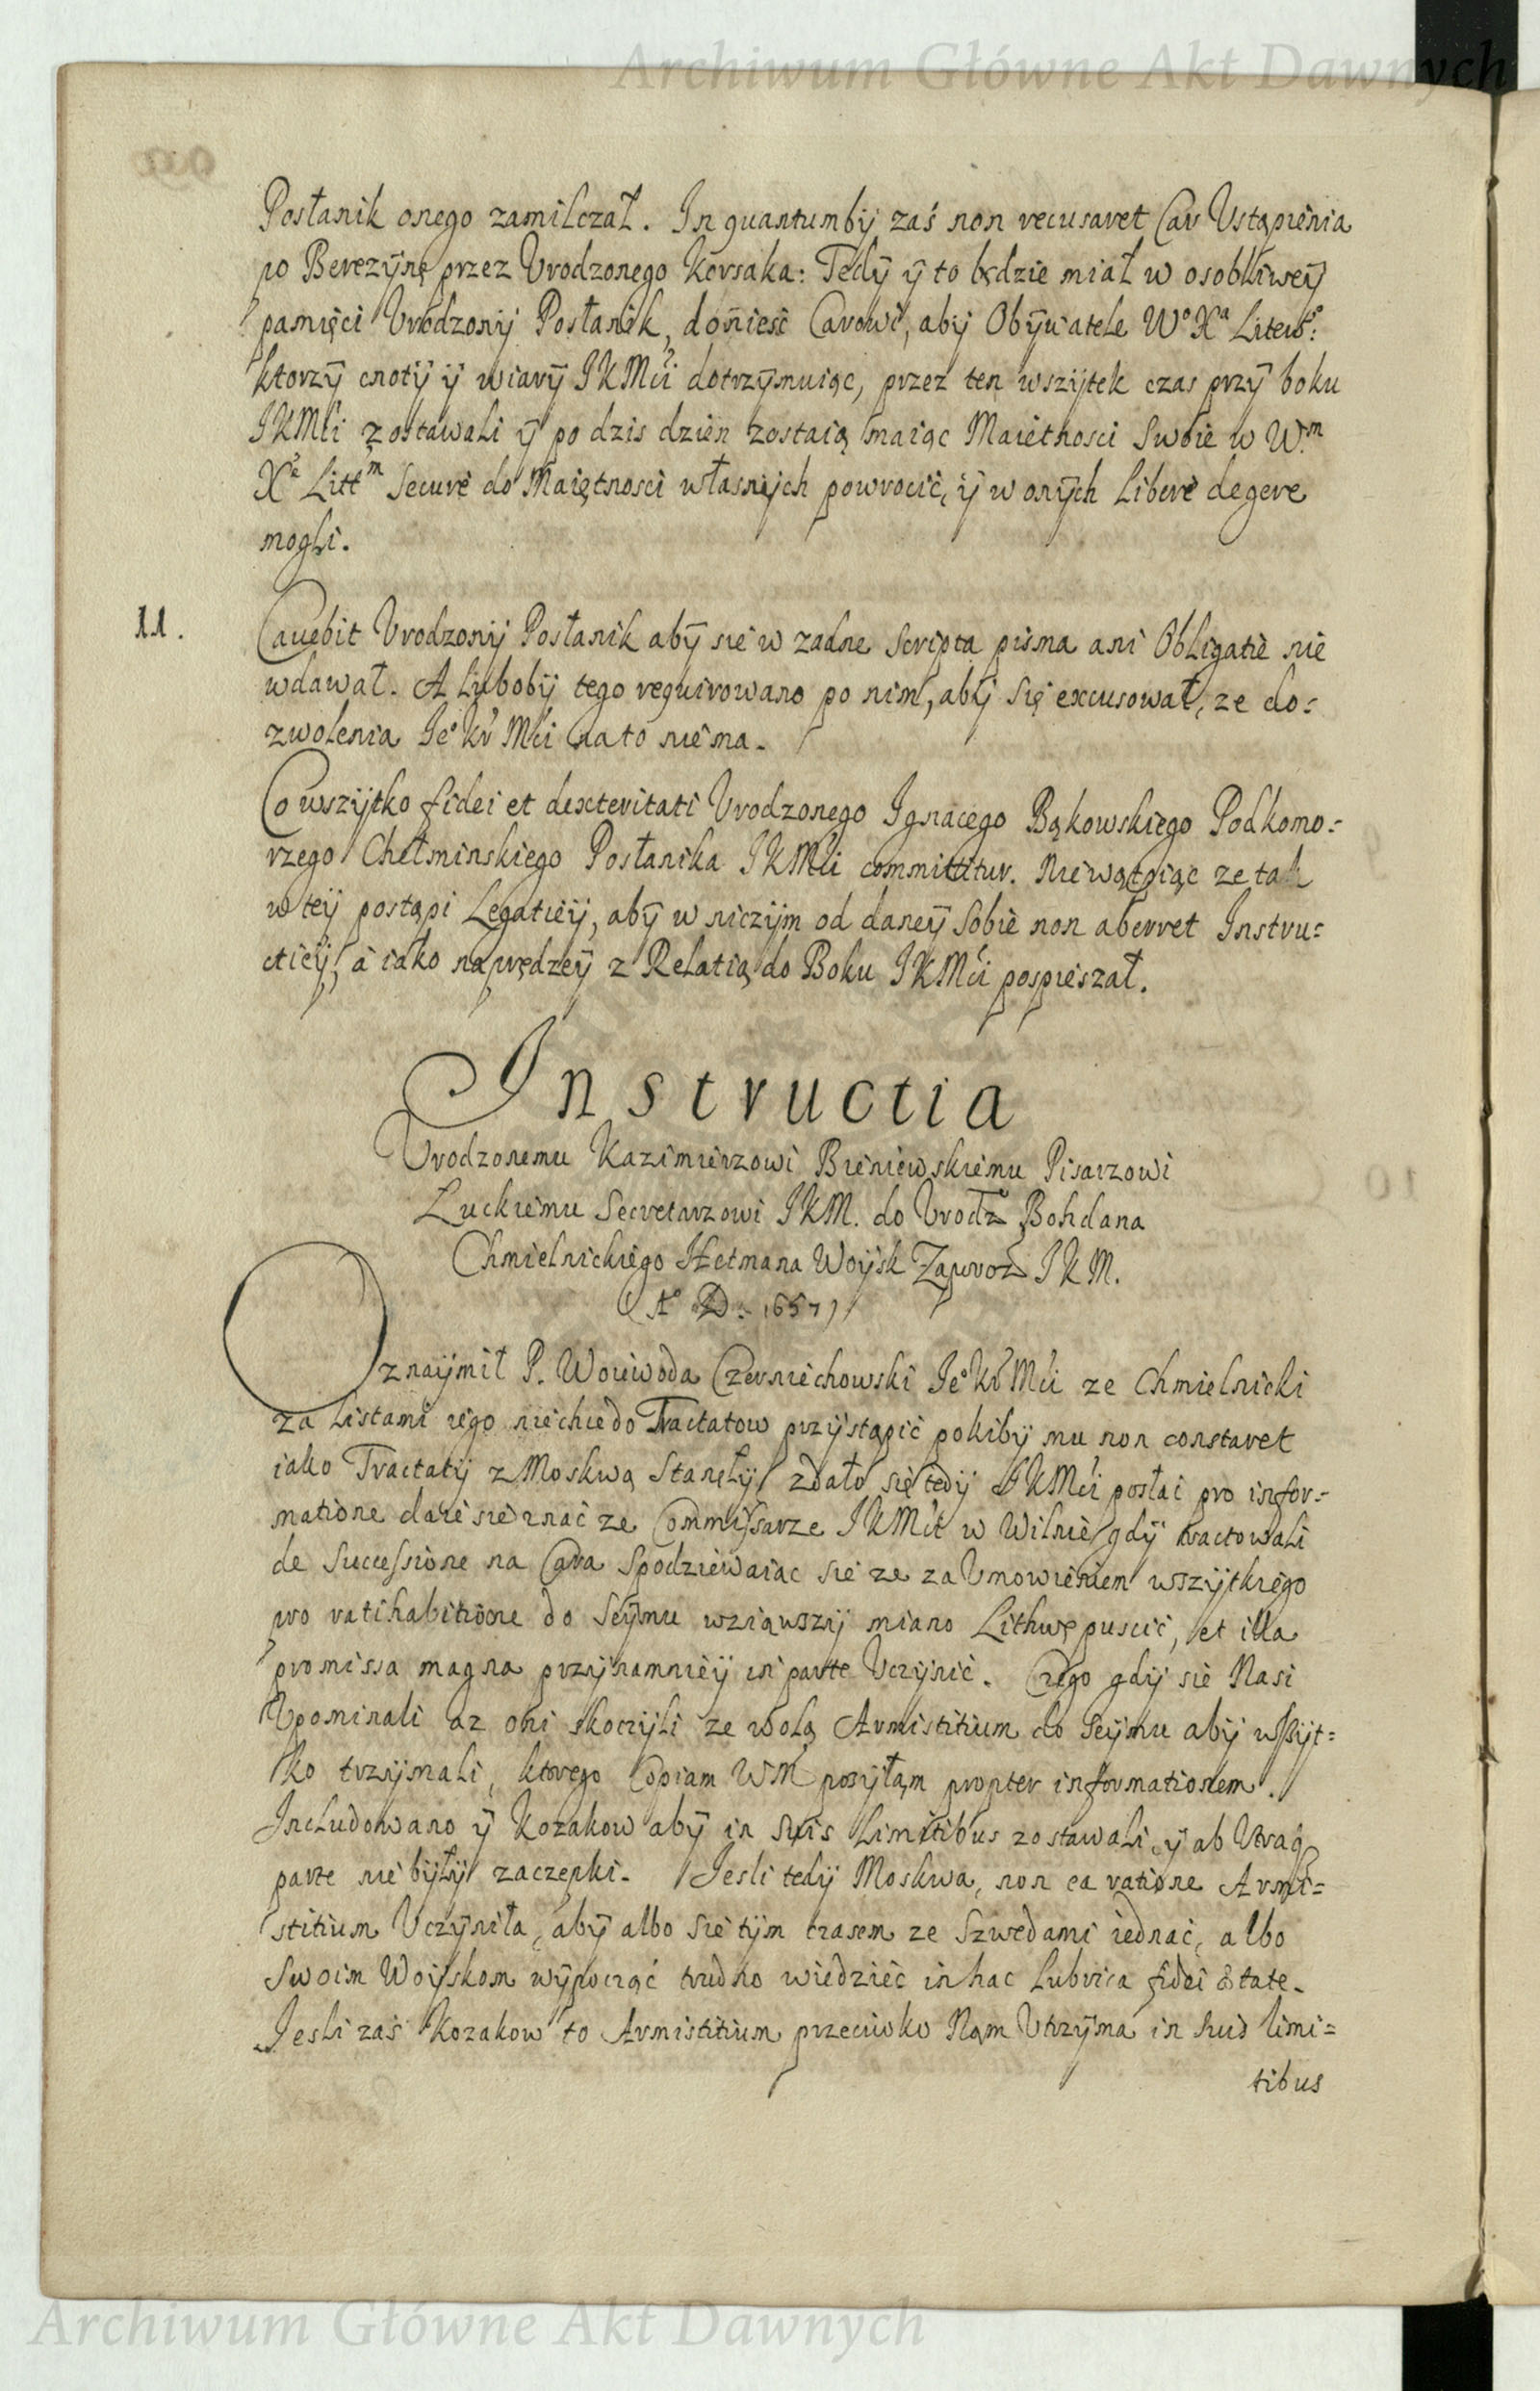 Archiwum Główne Akt Dawnych
Posłanik onego zamilczał. In quantumbÿ zaś non recusaret Car Ustąpienia
po Berezynę przez Urodzonego Korsaka: Tedÿ ÿ to będzie miał w osobliweÿ
pamięci Urodzonÿ Posłanik, donieść Carowi, abÿ Obÿwatele Wº Xª Litewº:
ktorzÿ cnotÿ ÿ wiarÿ JKMći dotrzÿmuiąc, przez ten wszÿtek czas przÿ boku
JKMći zostawali ÿ po dzis dzien zostaią maiąc Maietnosci Swoie w W.m
Xe Littm Securè do Maiętnosci własnÿch powrocić, ÿ w onÿch Liberè degere
mogli.
11.
Cauebit Urodzonÿ Posłanik abÿ sie w zadne Scripta pisma ani Obligatie nie
wdawał. A Lubobÿ tego requirowano po nim, abÿ się excusował, ze do=
zwolenia Jeº Kr Mći na to nie ma.
Co wszÿtko fidei et dexteritati Urodzonego Ignacego Bąkowskiego Podkomo=
rzego Chełminskiego Posłanika JKMći committitur. Niewątpiąc ze tak
w teÿ postąpi Legatieÿ, abÿ w niczÿm od daneÿ Sobie non aberret Instru=
ctieÿ, à iako naprędzeÿ z Relatią do Boku JKMći pospieszał.
Instructia
Urodzonemu Kazimierzowi Bieniewskiemu Pisarzowi
Łuckiemu Secretarzowi JKM. do Urodz Bohdana
Chmielnickiego Hetmana Woÿsk Zaporoz JKM.
(Aº D. 1657)
Oznaÿmił P. Woiewoda Czerniechowski Jeº Kr Mći ze Chmielnicki
za Listami iego niechce do Tractatow przÿstąpić pokibÿ mu non constaret
iako Tractatÿ z Moskwą Stanęłÿ, zdało się tedÿ JKMći posłać pro infor=
matione daie sie znać ze Commissarze JKMći w Wilnie gdÿ tractowali
de Successione na Cara Spodziewaiąc sie ze za Umowieniem wszÿtkiego
pro ratihabitione do Seÿmu wziąwszÿ miano Lithwę puscić, et illa
promissa magna przÿnamnieÿ in parte Uczÿnić. Czego gdÿ sie Nasi
Upominali az oni skoczÿli ze wolą Armistitium do Seÿmu abÿ wszÿt=
ko trzÿmali, ktorego Copiam WM posÿłam propter informationem.
Includowano ÿ Kozakow abÿ in Suis Limitibus zostawali, ÿ ab Utraq
parte nie bÿłÿ zaczepki. Jesli tedÿ Moskwa, non ea ratione Armi=
stitium Uczÿniła, abÿ albo Sie tÿm czasem ze Szwedami iednać, albo
Swoim Woÿskom wÿpocząć trudno wiedzieć in hac Lubrica fidei
Jesli zaś Kozakow to Armistitium przeciwko Nam Utrzÿma in Suis limi=
tibus
Archiwum Główne Akt Dawnych